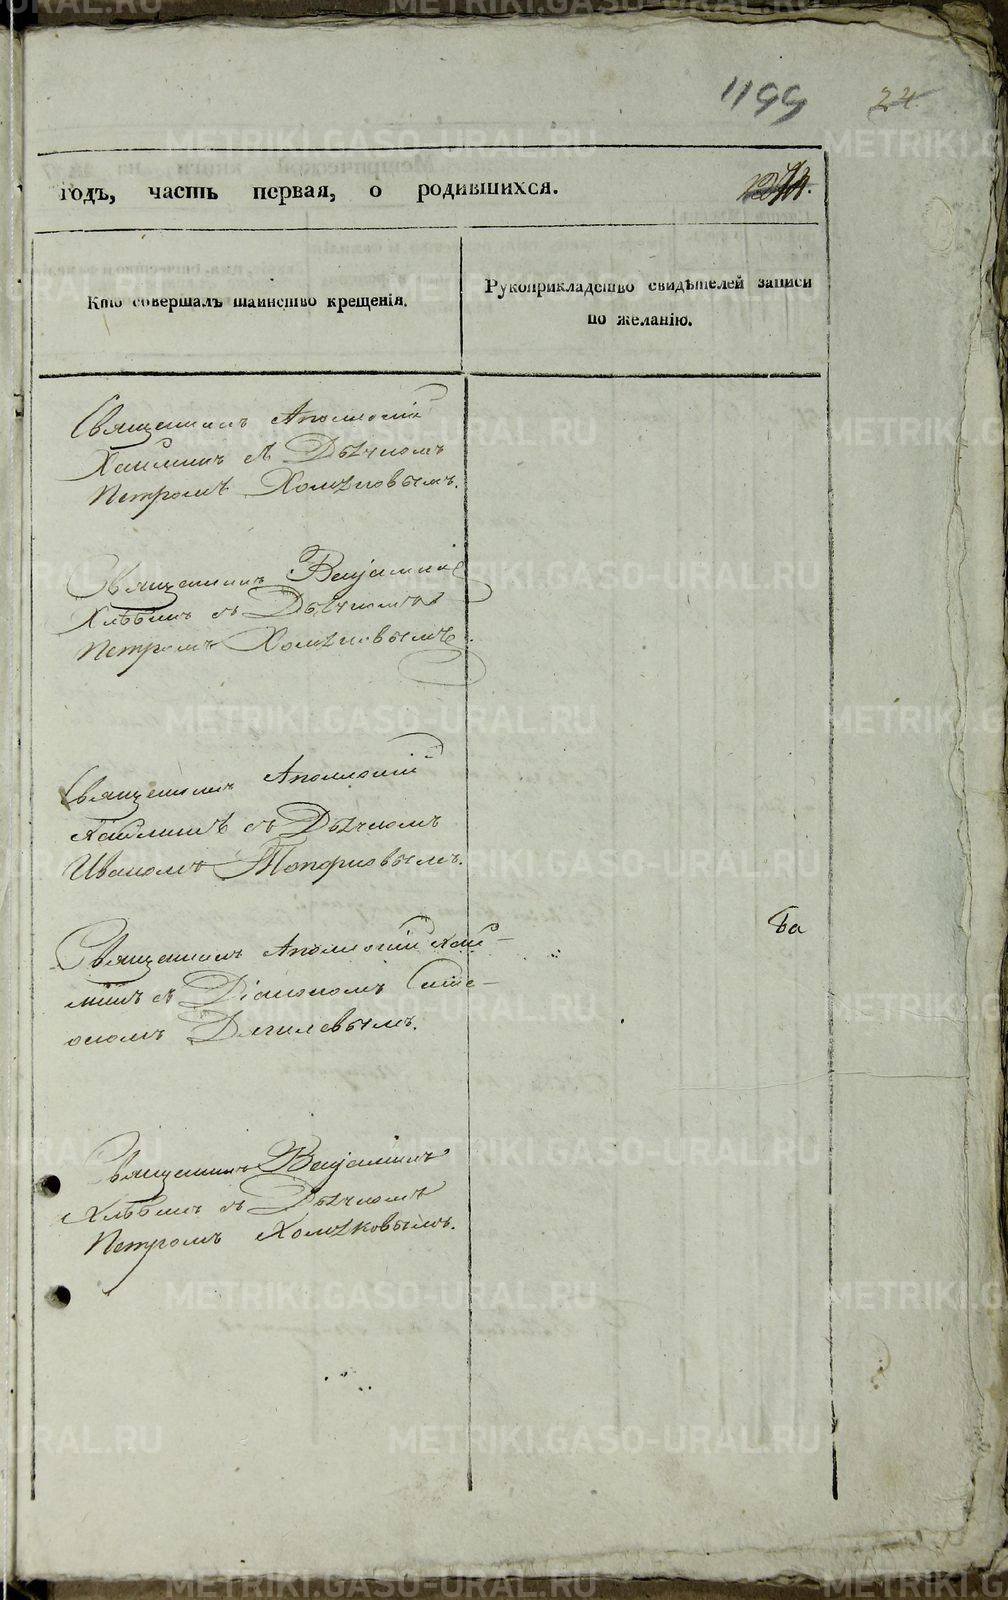 1199 24
годъ, часть первая, о родившихся.
Кто совершалъ таинство крещенія.
Рукоприкладство свидѣтелей записи
по желанію.
Священникъ Аполлоній
съ Дьячкомъ
Петромъ Хомяковымъ.
Священникъ Веніаминъ
Хлѣбинъ съ Дьячкомъ
Петромъ Хомяковымъ.
Священникъ Аполлоній
съ Дьячкомъ
Иваномъ Топорковымъ.
Священникъ Аполлоній
съ Діакономъ Симе-
ономъ Дягилевымъ.
ба
Священникъ Веніаминъ
Хлѣбинъ съ Дьячкомъ
Петромъ Хомяковымъ.
METRIKI.GASO-URAL.RU